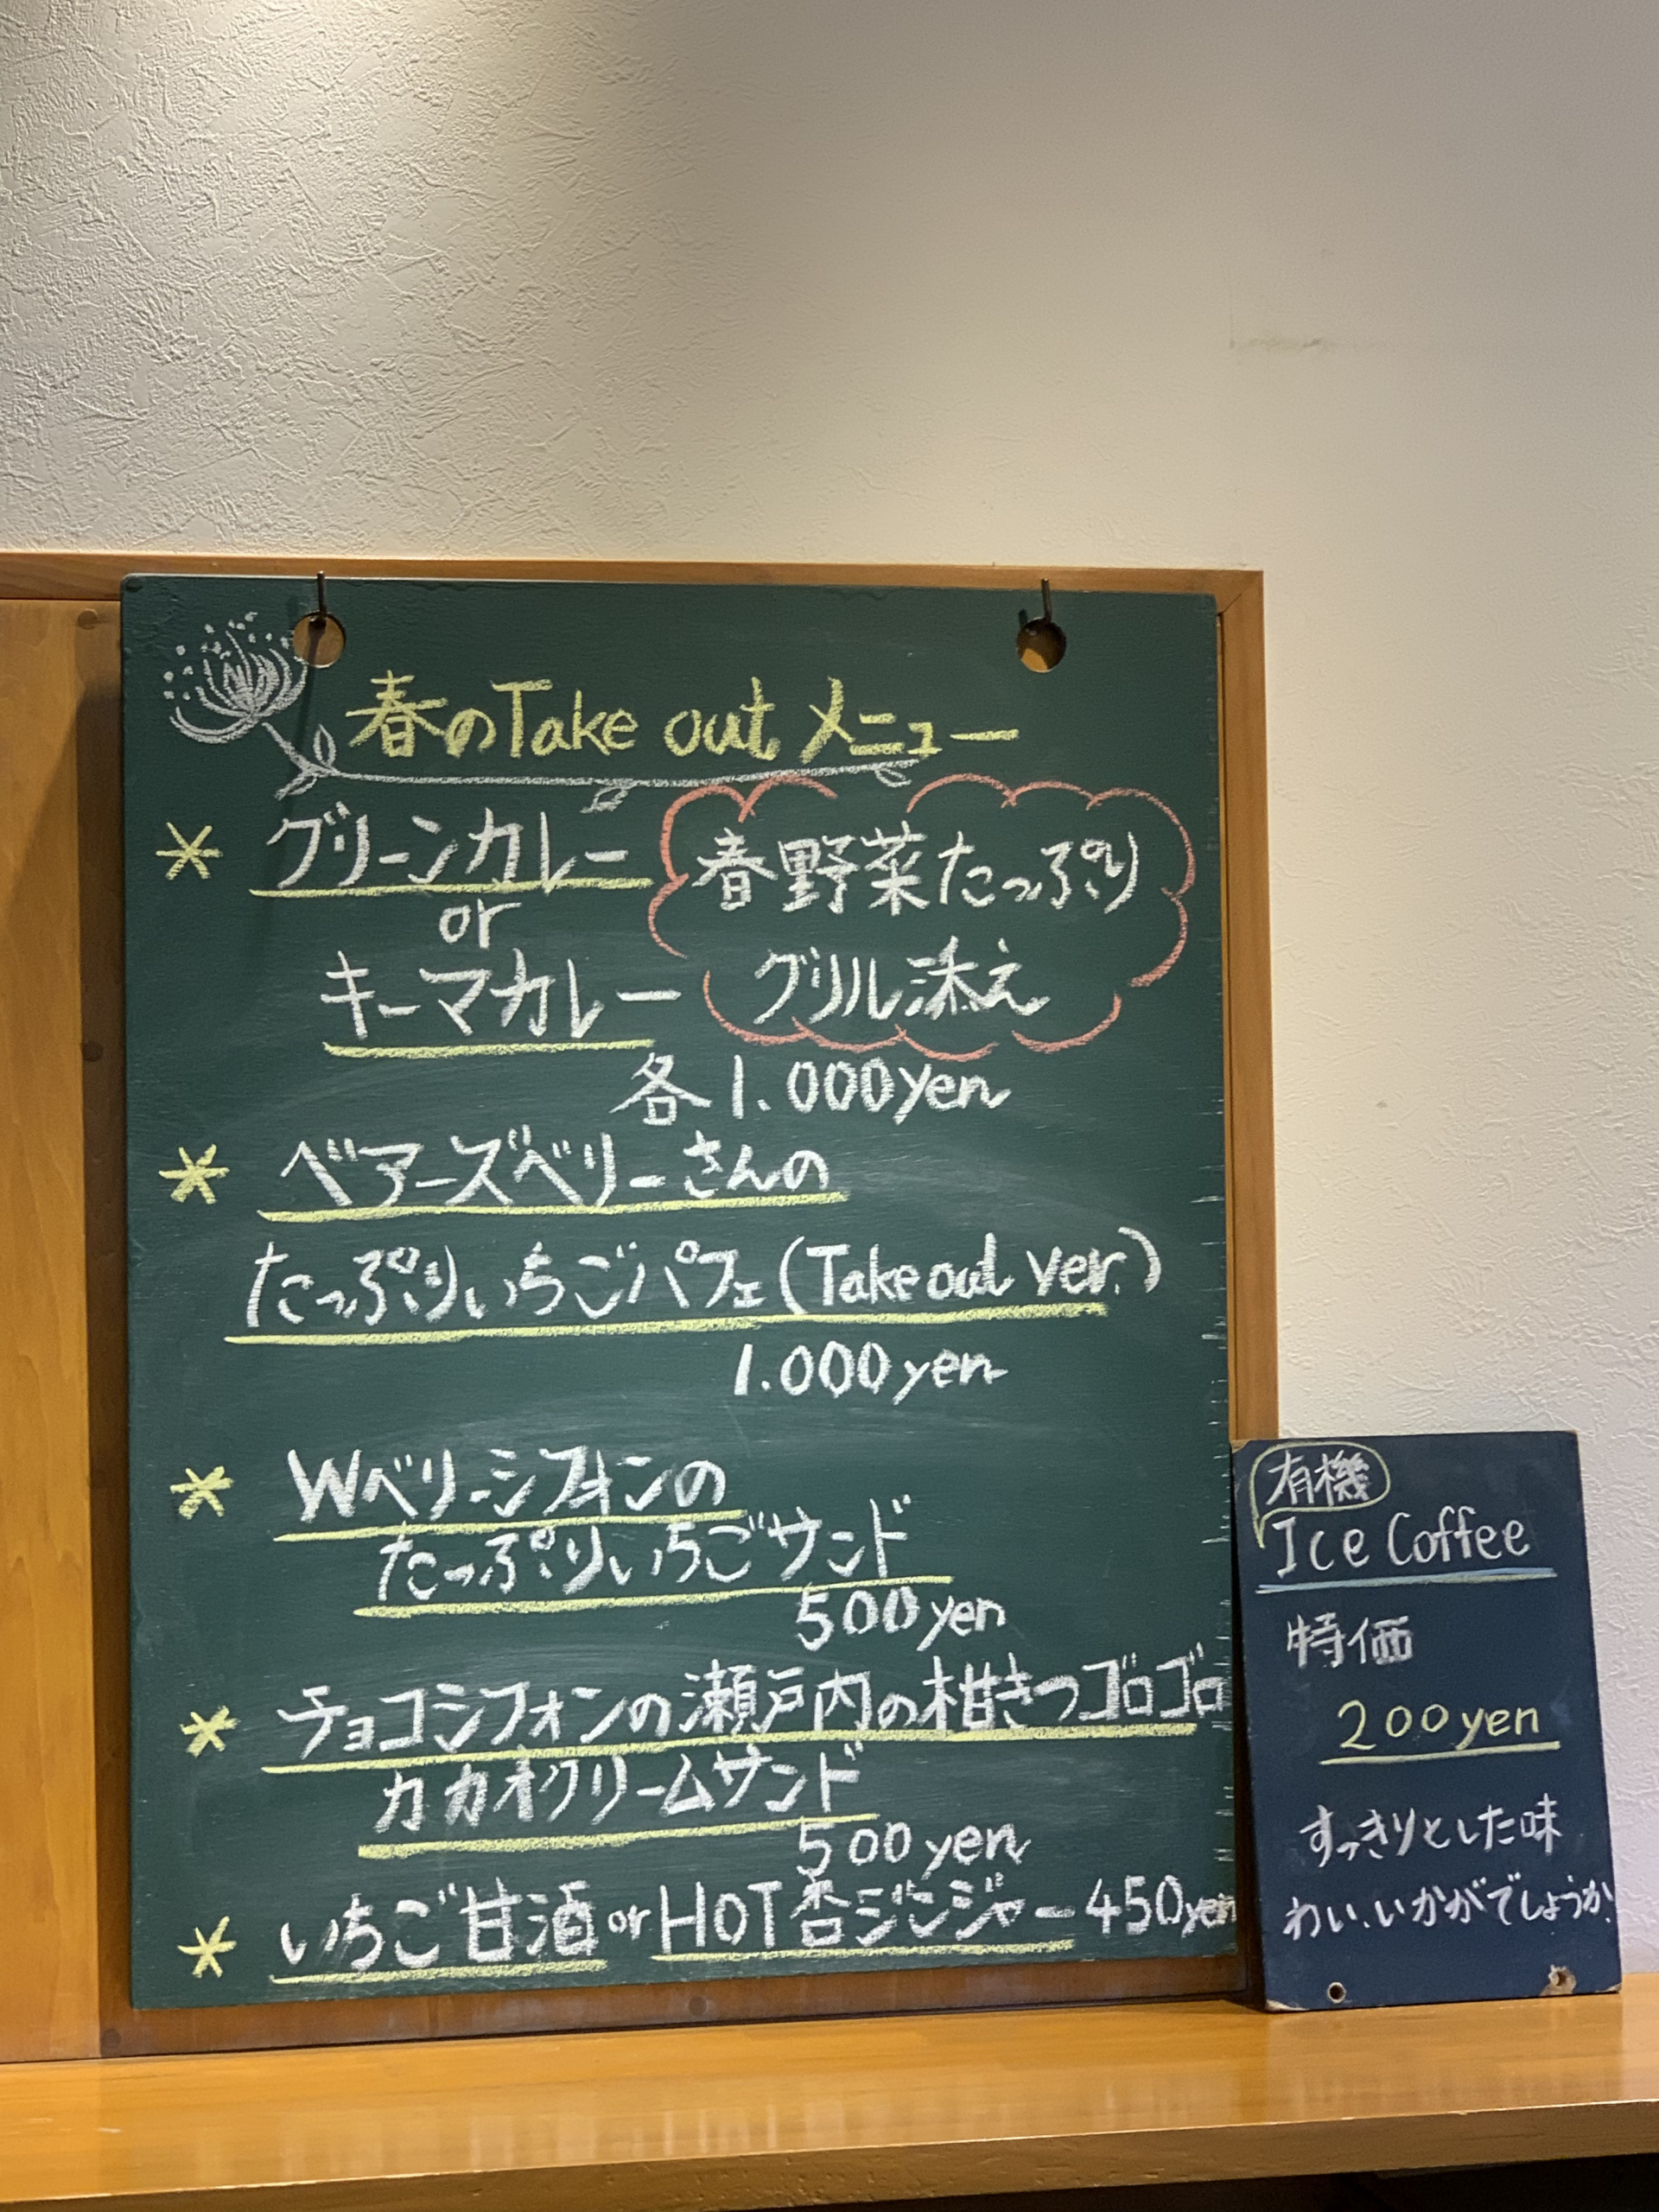 春のTake out メニュー
* グリーンカレー
or
キーマカレー
春野菜たっぷり
グリル添え
各1.000yen
* ベアーズベリーさんの
たっぷりいちごパフェ(Take out ver.)
1.000yen
* Wベリーシフォンの
たっぷりいちごサンド
500yen
* チョコシフォンの瀬戸内の柑きつゴロゴロ
カカオクリームサンド
500yen
* いちご甘酒 or HOT杏ジンジャー 450yen
有機
Ice Coffee
特価
200yen
すっきりとした味
わい、いかがでしょうか。